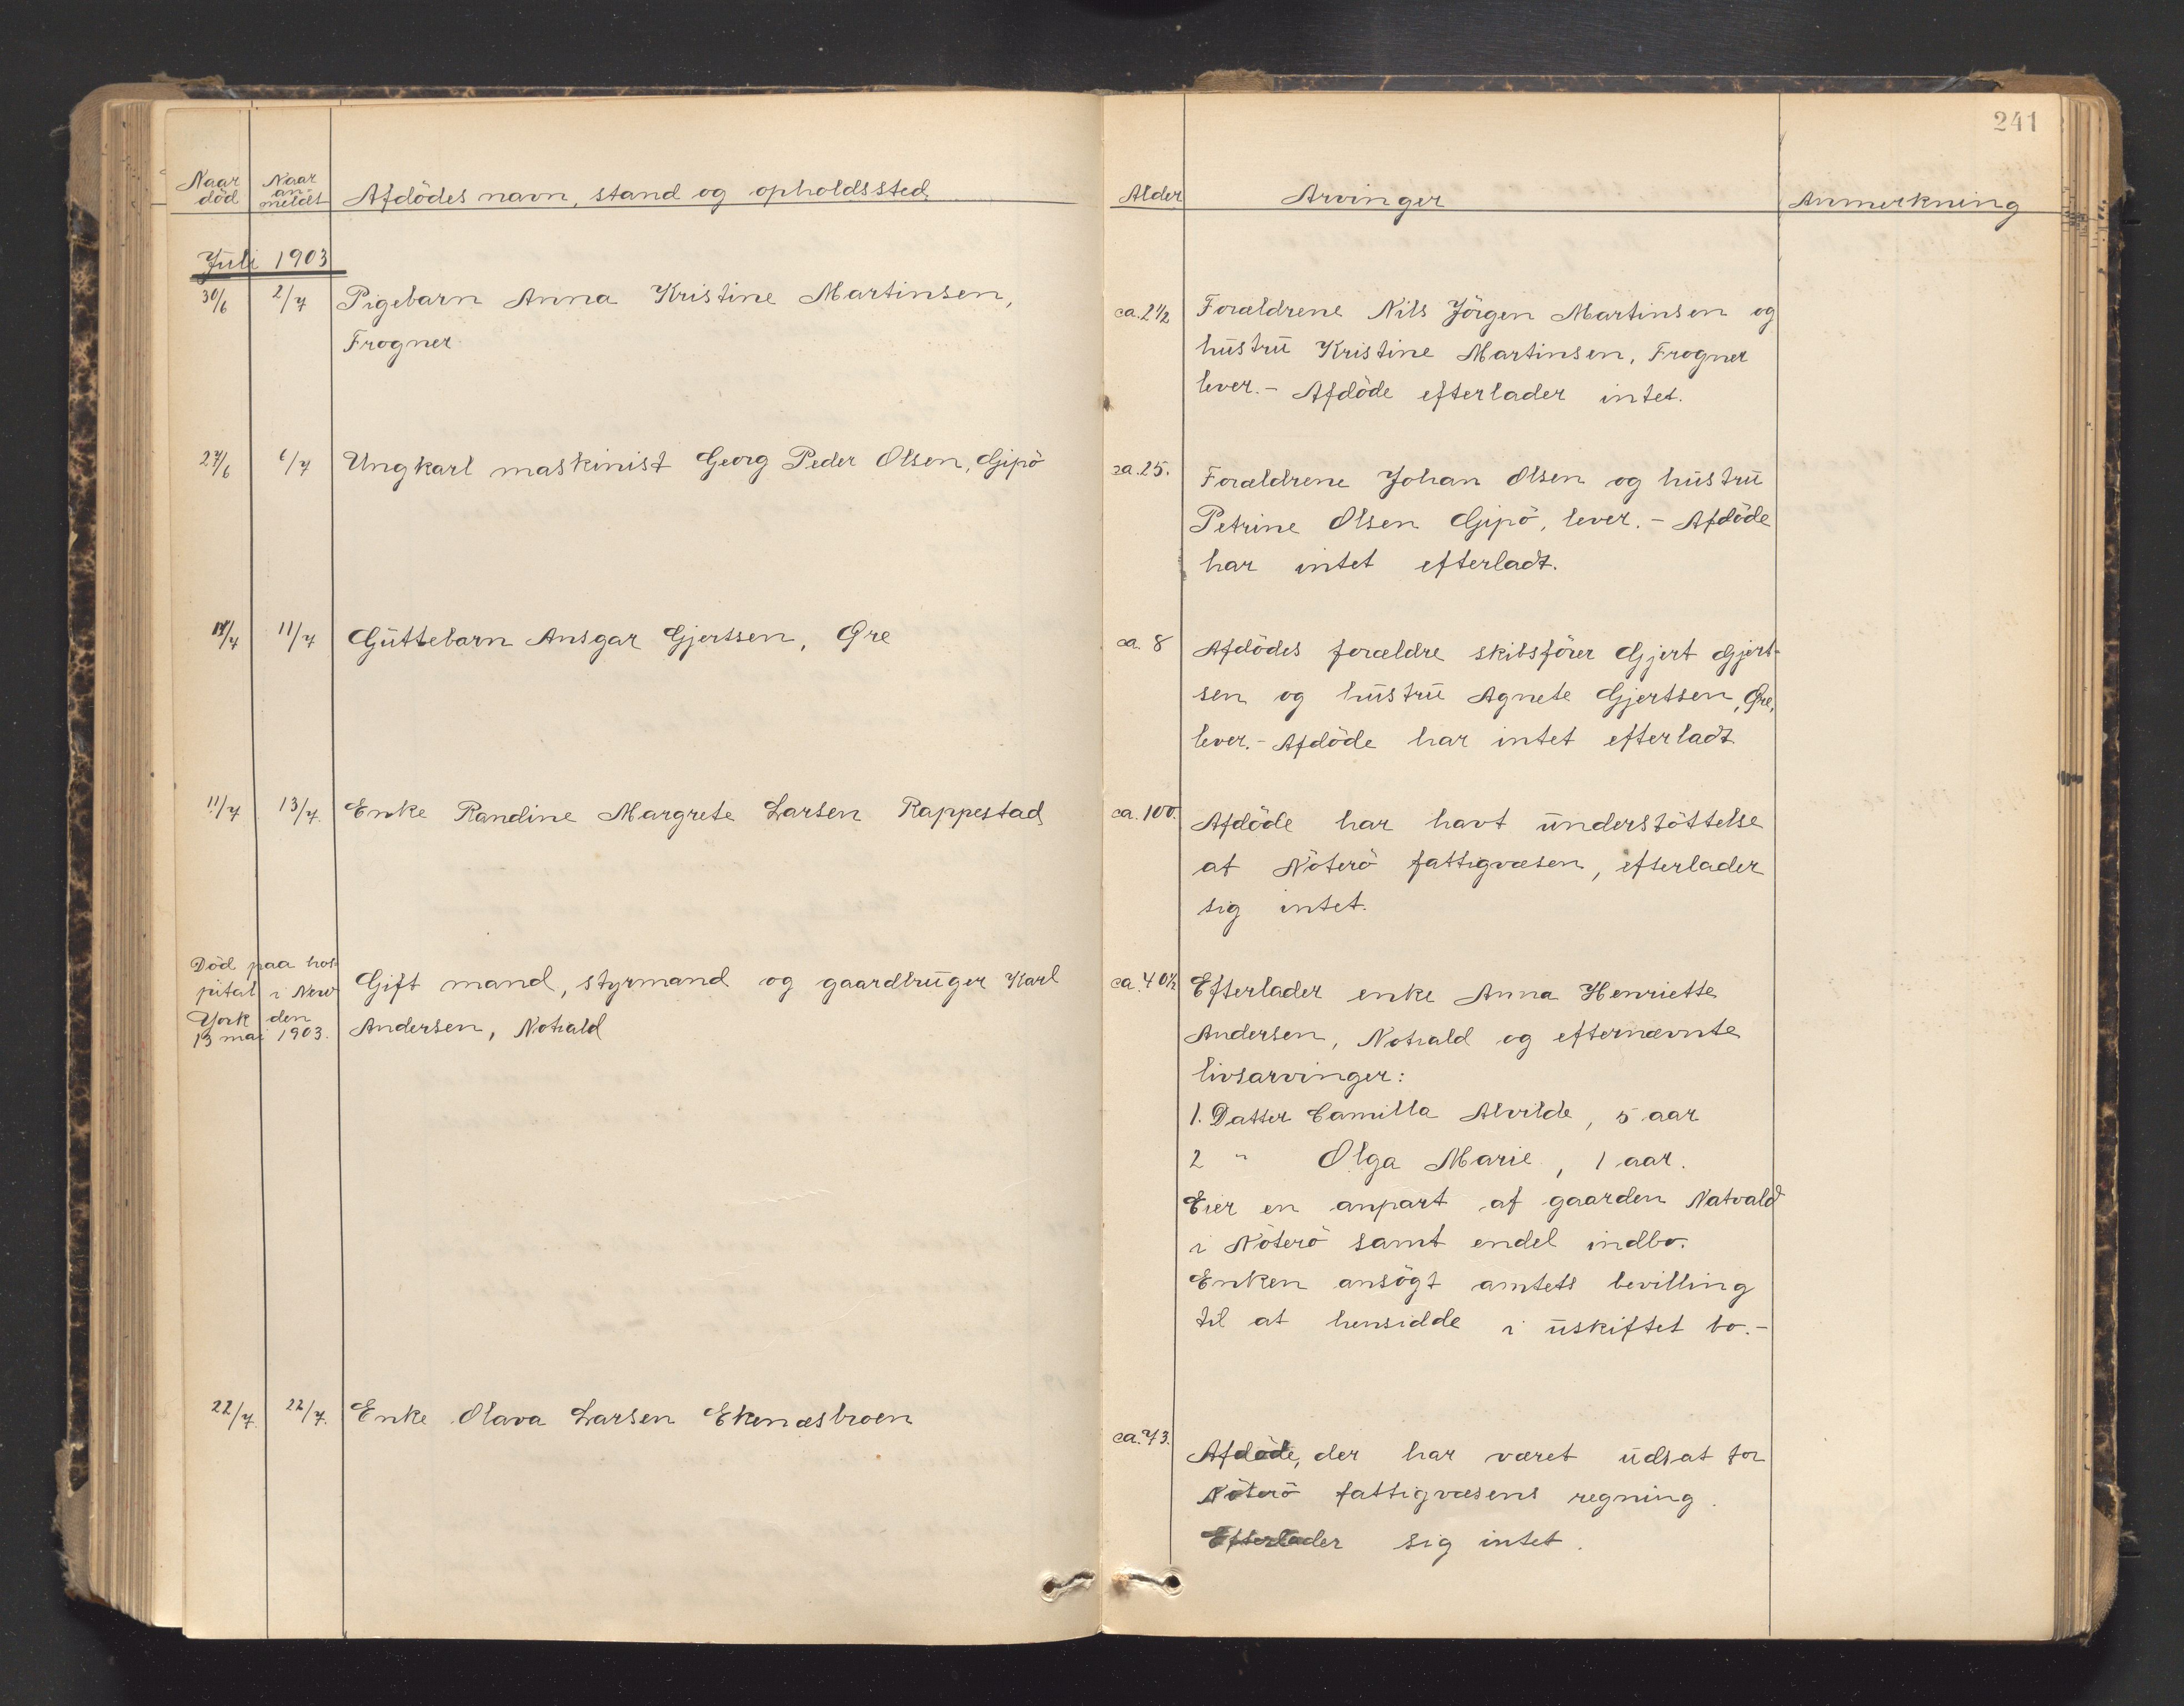 241
Naar död
Naar an- meldt
Afdödes navn, stand og opholdssted
Alder
Arvinger
Anmerkning
Juli 1903
30/6 2/7 Pigebarn Anna Kristine Martinsen,
Frogner
ca. 2 1/2 Forældrene Nils Jörgen Martinsen og
hustru Kristine Martinsen, Frogner
lever.- Afdöde efterlader intet.
27/6 6/7 Ungkarl maskinist Georg Peder Olsen, Gipö
ca. 25. Forældrene Johan Olsen og hustru
Petrine Olsen Gipö, lever.- Afdöde
har intet efterladt.
11/7 Guttebarn Ansgar Gjertsen, Øre
ca. 8 Afdödes forældre skibsförer Gjert Gjert-
sen og hustru Agnete Gjertsen, Øre,
lever.- Afdöde har intet efterladt
11/7 13/7. Enke Randine Margrete Larsen Rappestad
ca. 100. Afdöde har havt understöttelse
af Nöterö fattigvæsen, efterlader
sig intet.
Död paa hos-
pital i New
York den
13 mai 1903.
Gift mand, styrmand og gaardbruger Karl
Andersen, Notvald
ca. 40 1/2 Efterlader enke Anna Henriette
Andersen, Notvald og efternævnte
livsarvinger:
1. Datter Camilla Alvilde, 5 aar
2 " Olga Marie, 1 aar.
Eier en anpart af gaarden Natvald
i Nöterö samt endel indbo.
Enken ansögt amtets bevilling
til at hensidde i uskiftet bo.-
22/7. 22/7. Enke Olava Larsen Ekenæsbroen
ca. 73. Afdöde, der har været udsat for
Nöterö fattigvæsens regning.
Efterlader sig intet.